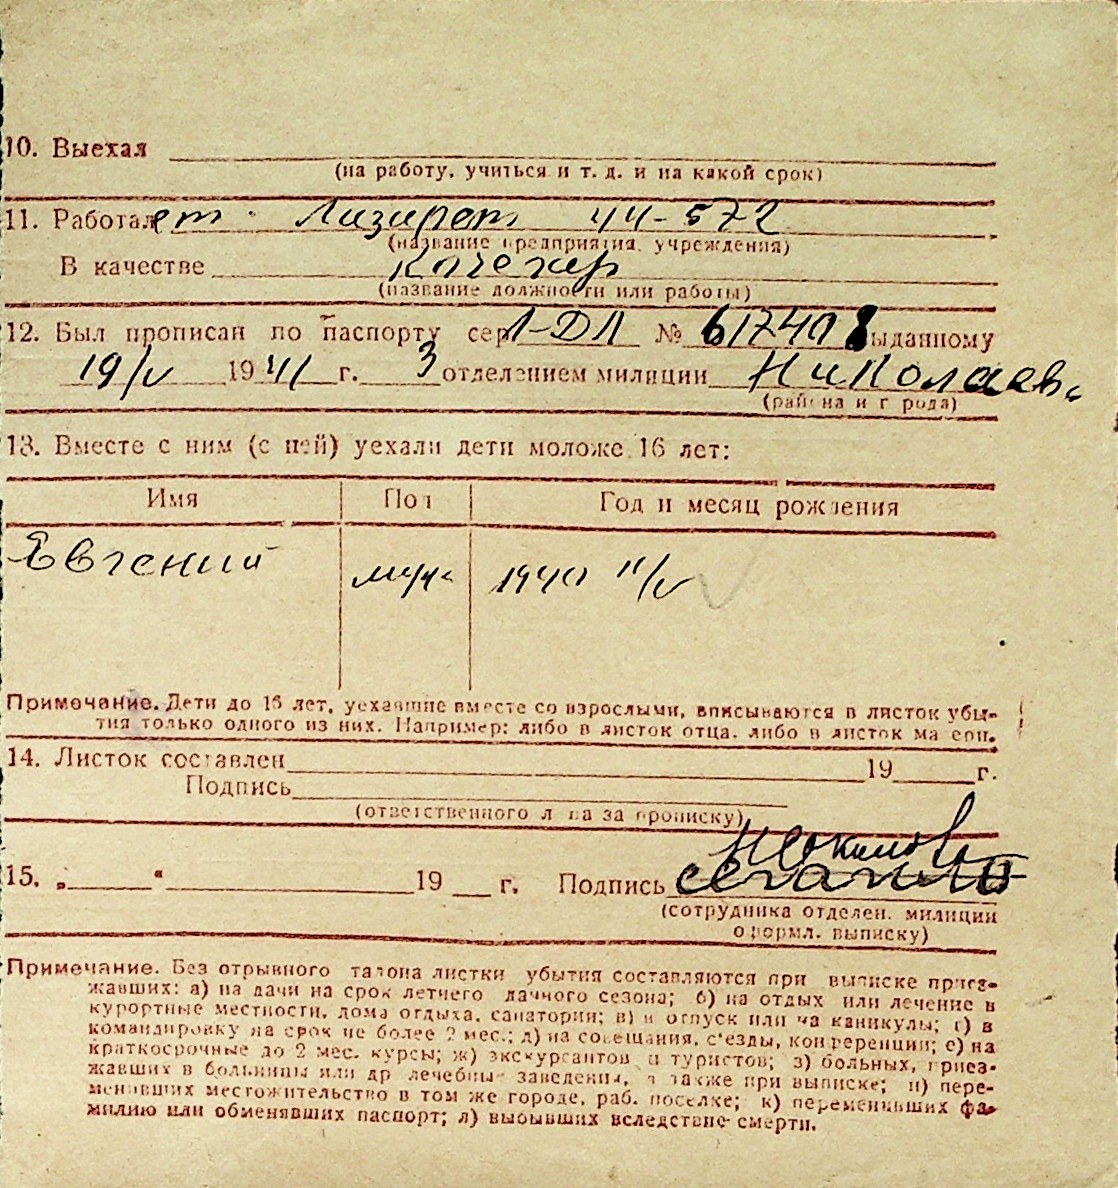 10. Выехал
(на работу, учиться и т. д. и на какой срок)
11. Работает Лазирет ЧЧ-572
(название предприятия, учреждения)
В качестве Кочегар
(название должности или работы)
12. Был прописан по паспорту сер 1-ДЛ № 617498 выданному
19/V 1941 г. 3 отделением милиции Николаев
(района и города)
13. Вместе с ним (с ней) уехали дети моложе 16 лет:
Имя Пол Год и месяц рождения
Евгений муж 1940 11/V
Примечание. Дети до 16 лет, уехавшие вместе со взрослыми, вписываются в листок убы-
тия только одного из них. Например: либо в листок отца, либо в листок матери.
14. Листок составлен 19 г.
Подпись
(ответственного лица за прописку)
15. „ “ 19 г. Подпись
(сотрудника отделен. милиции
оформл. выписку)
Примечание. Без отрывного талона листки убытия составляются при выписке приез-
жавших: а) на дачи на срок летнего дачного сезона; б) на отдых или лечение в
курортные местности, дома отдыха, санатории; в) в отпуск или на каникулы; г) в
командировку на срок не более 2 мес.; д) на совещания, с'езды, конференции; е) на
краткосрочные до 2 мес. курсы; ж) экскурсантов и туристов; з) больных, приез-
жавших в больницы или др лечебные заведения, а также при выписке; и) пере-
менивших местожительство в том же городе, раб. поселке; к) переменивших фа-
милию или обменявших паспорт; л) выбывших вследствие смерти.